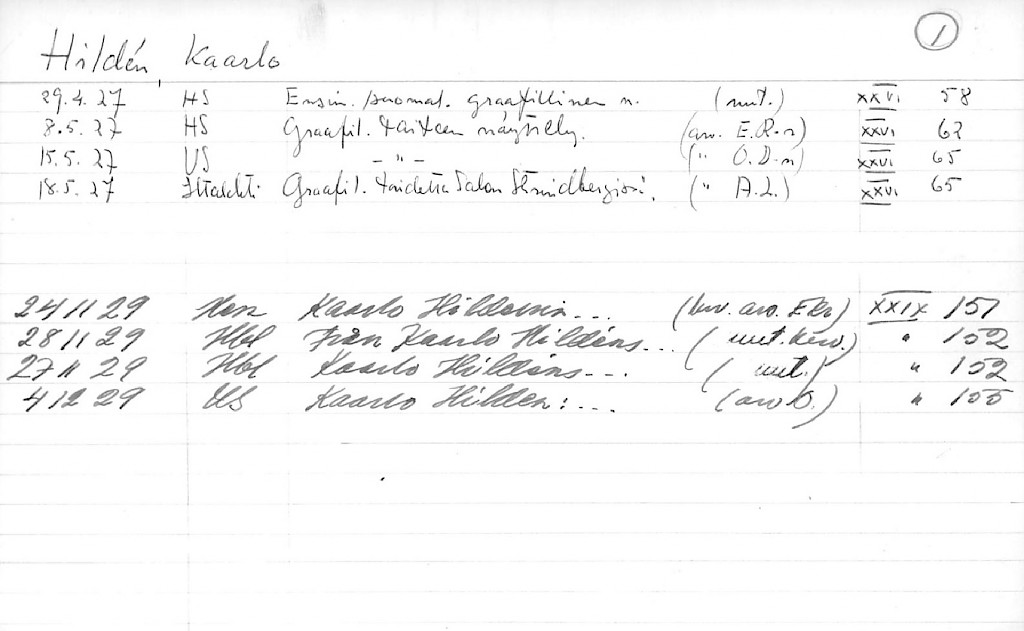 1
Hildén, Kaarlo
29.4.27 HS Ensim. suomal. graafillinen n. (uut.) XXVI 58
8.5.27 HS Graafil. taiteen näyttely. (arv. E.R-r) XXVI 62
15.5.27 US – " – (" O.D-n) XXVI 65
18.5.27 Iltalehti Graafil. taidetta Salon Strindbergissä. (" A.L.) XXVI 65
24/11 29 Kaarlo Hildenin... (kuv. arv. EKr) XXIX 151
28/11 29 Hbl Från Kaarlo Hildéns... (uut. kuv.) " 152
27/11 29 Hbl Kaarlo Hildéns... (uut.) " 152
4/12 29 US Kaarlo Hilden:... (arv O.) " 155